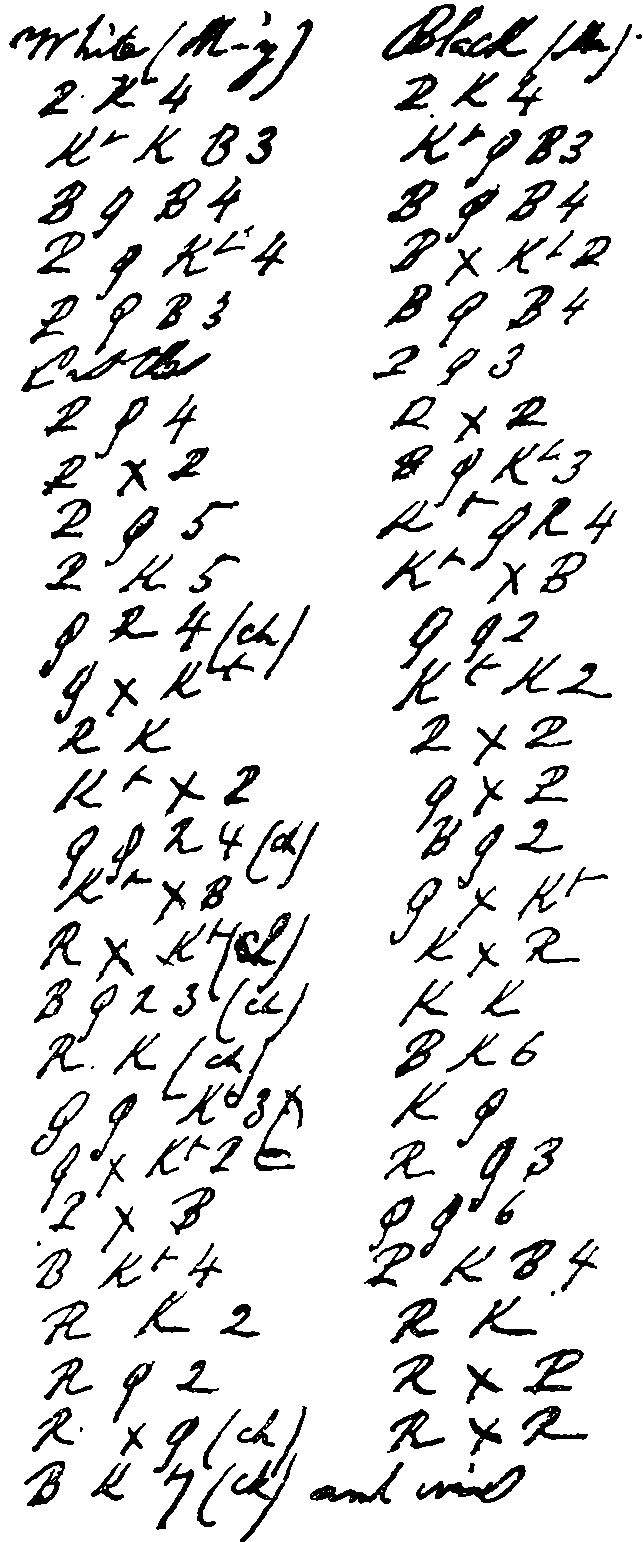 White (M-y) Black (Mr).
P. K 4 P. K 4
Kt K B 3 Kt Q B 3
B Q B 4 B Q B 4
P Q Kt 4 B x Kt P
P Q B 3 B Q B 4
Castles P Q 3
P Q 4 P x P
P x P B Q Kt 3
P Q 5 Kt Q R 4
P K 5 Kt x B
Q R 4 (ch) Q Q 2
Q x Kt Kt K 2
R K P x P
Kt x P Q x P
Q Q R 4 (ch) B Q 2
Kt x B Q x Kt
R x Kt (ch) K x R
B Q R 3 (ch) K K
R. K (ch) B K 6
Q Q Kt 3 K Q
Q x Kt P R Q B
P x B Q Q 6
B Kt 4 P K B 4
R K 2 R K
R Q 2 R x P
R. x Q (ch) R x R
B K 7 (ch) and wins